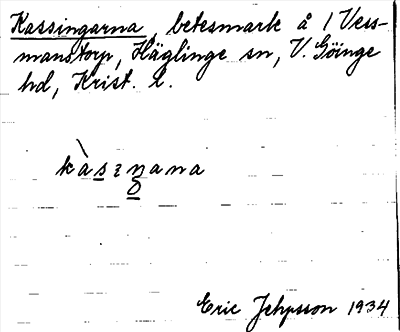 Kassingarna, betesmark å 1 Vess-
manstorp, Häglinge sn, V. Göinge
hd, Krist. l.
Eric Jehpsson 1934